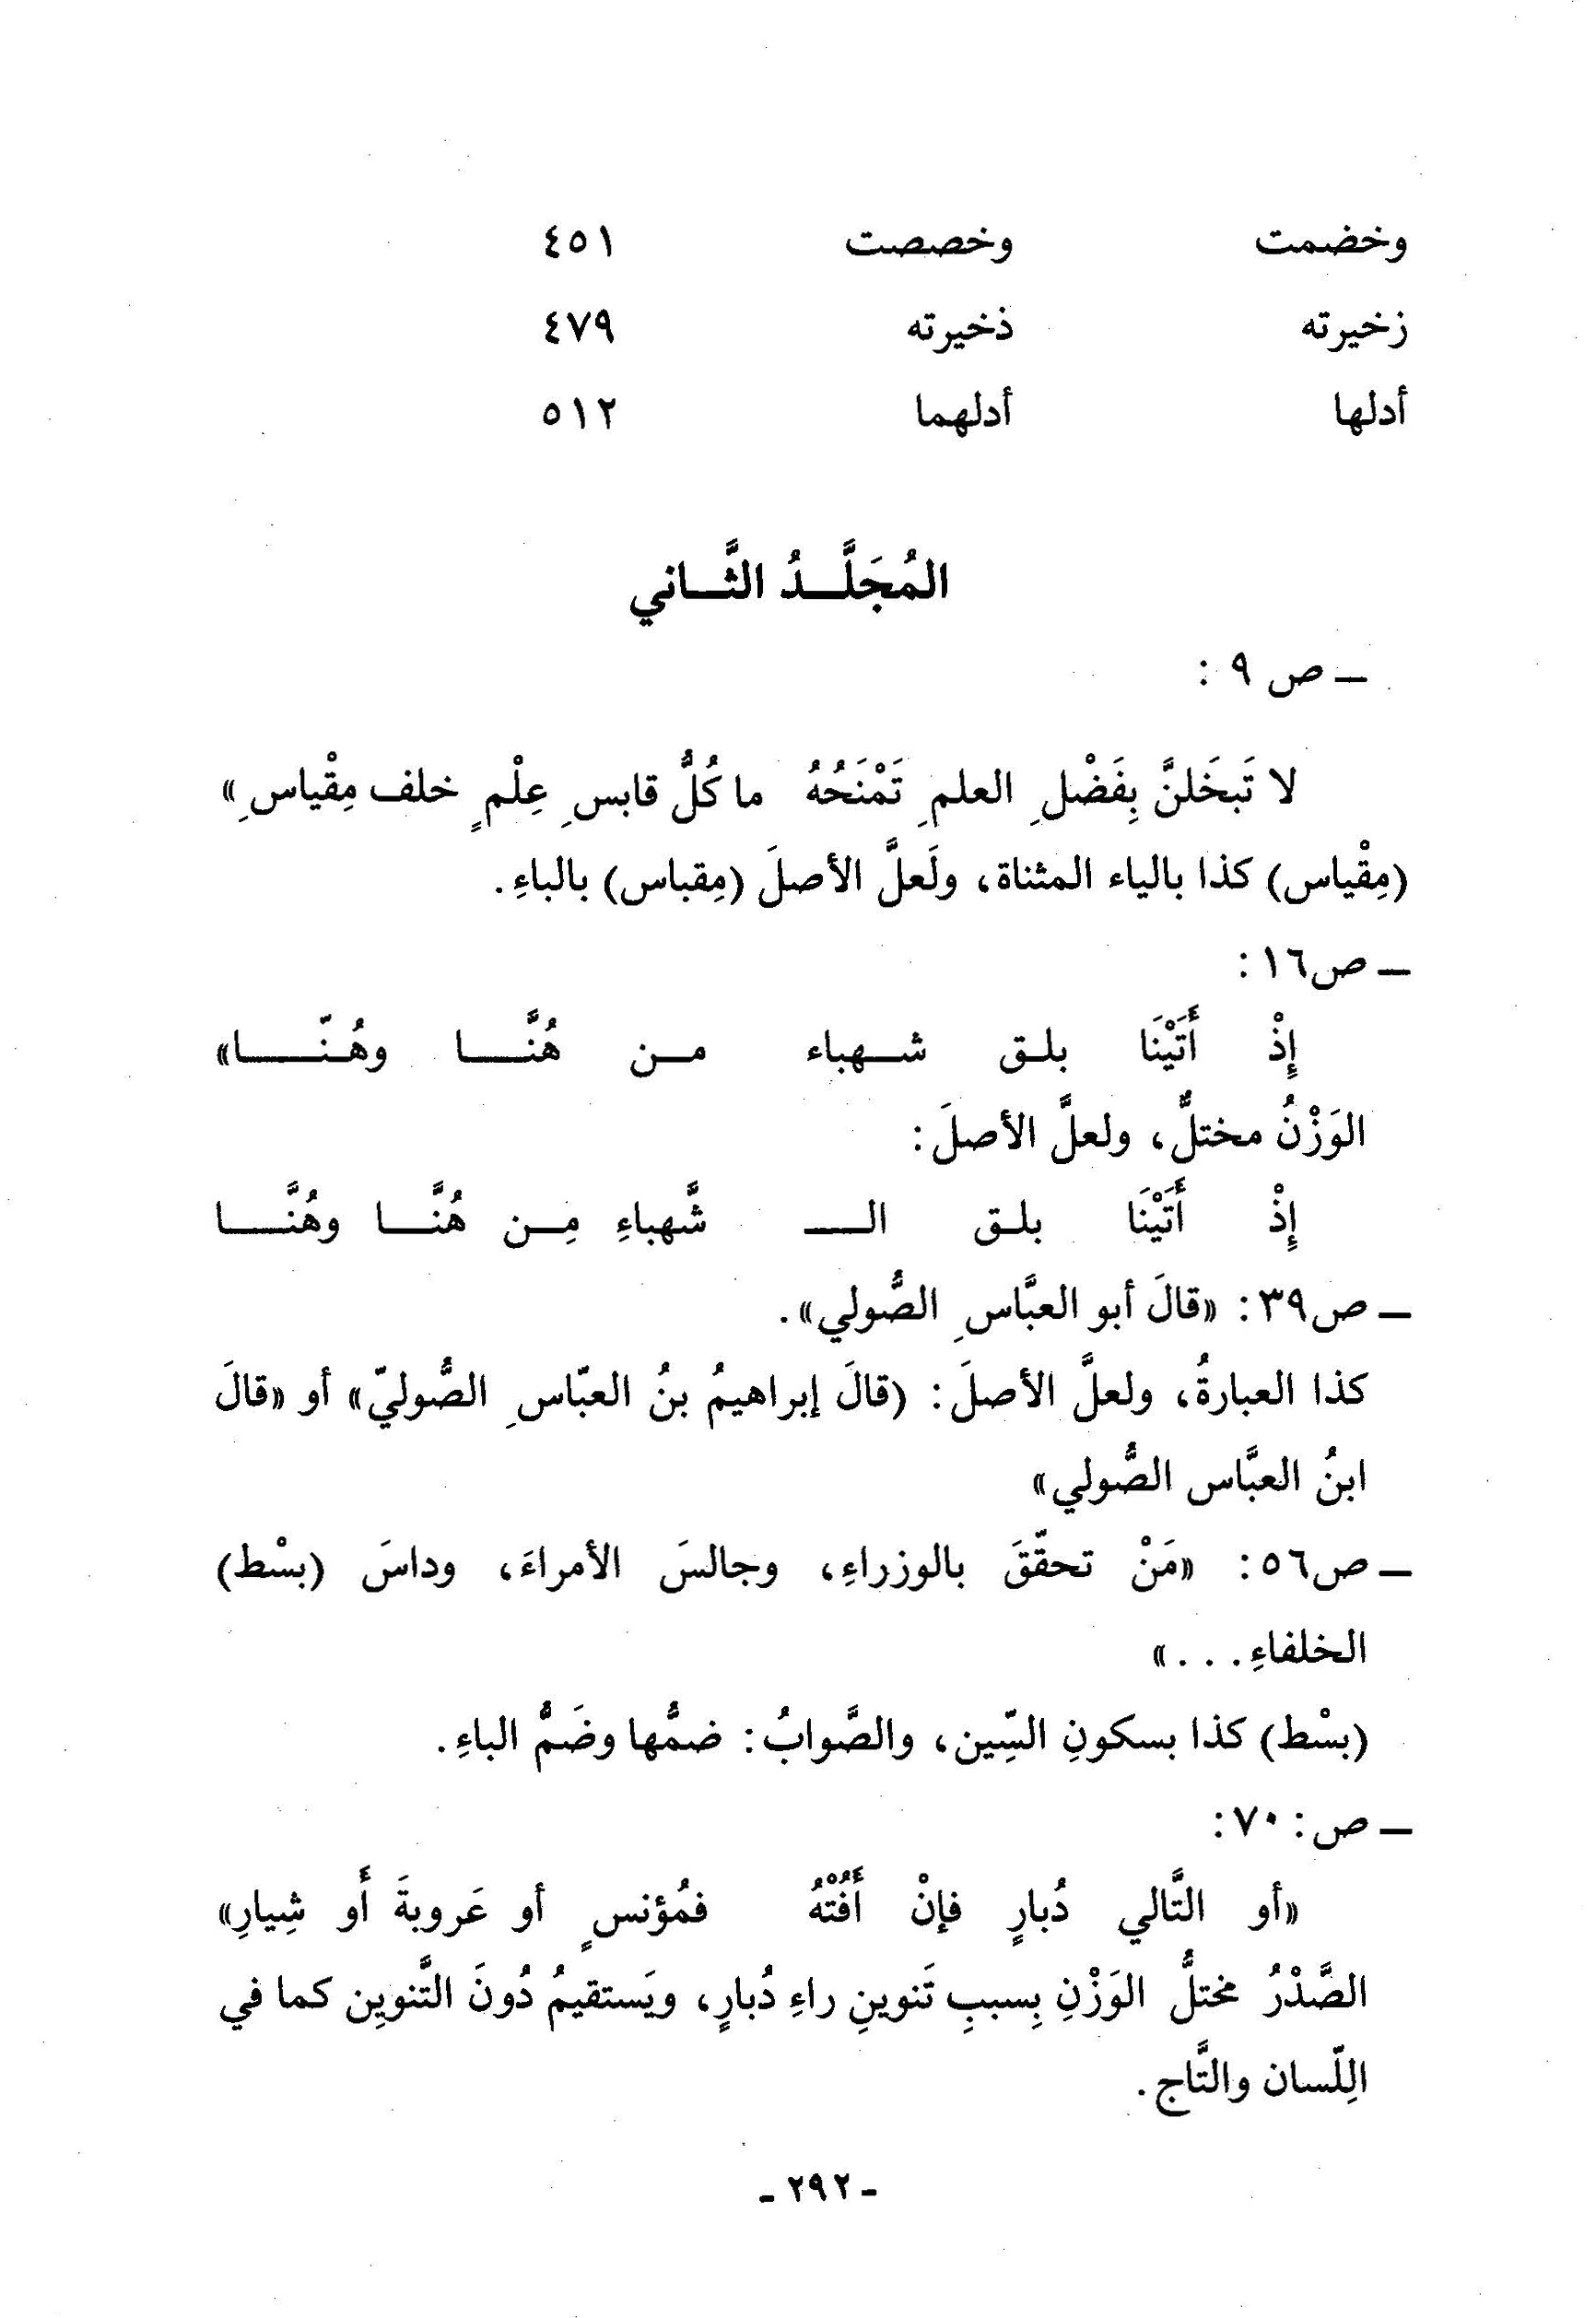 وخضمت وخصصت ٤٥١
زخيرته ذخيرته ٤٧٩
أدلها أدلهما ٥١٢
المُجَلَّـدُ الثَّـاني
ـ ص ٩ :
لا تَبخَلنَّ بِفَضْلِ العلمِ تَمْنَحُهُ ما كُلُّ قابسِ عِلْمٍ خلف مِقْياسِ»
(مِقْياس) كذا بالياء المثناة، ولَعلَّ الأصلَ (مِقباس) بالباءِ.
ـ ص١٦:
إِذْ أَتَيْنَا بلـق شـهباء مـن هُنَّـا وهُـنّـا»
الوَزْنُ مختلٌّ، ولعلَّ الأصلَ:
إِذْ أَتَيْنَا بلـق الـ شَّهباءِ مِـن هُنَّـا وهُنَّـا
ـ ص٣٩: «قالَ أبو العبَّاسِ الصُّولي».
كذا العبارةُ، ولعلَّ الأصلَ: (قالَ إبراهيمُ بنُ العبّاسِ الصُّوليّ» أو «قالَ
ابنُ العبَّاس الصُّولي»
ـ ص٥٦: «مَنْ تحقّقَ بالوزراءِ، وجالسَ الأمراءَ، وداسَ (بسْط)
الخلفاءِ...»
(بسْط) كذا بسكونِ السِّين، والصَّوابُ: ضمُّها وضَمُّ الباءِ.
ـ ص: ٧٠:
«أو التَّالي دُبارٍ فإنْ أَفُتْهُ فمُؤنسٍ أو عَروبةَ أَو شِيارِ»
الصَّدْرُ مختلُّ الوَزْنِ بِسببِ تَنوينِ راءِ دُبارٍ، ويَستقيمُ دُونَ التَّنوين كما في
اللِّسان والتَّاج.
ـ ٢٩٢ ـ